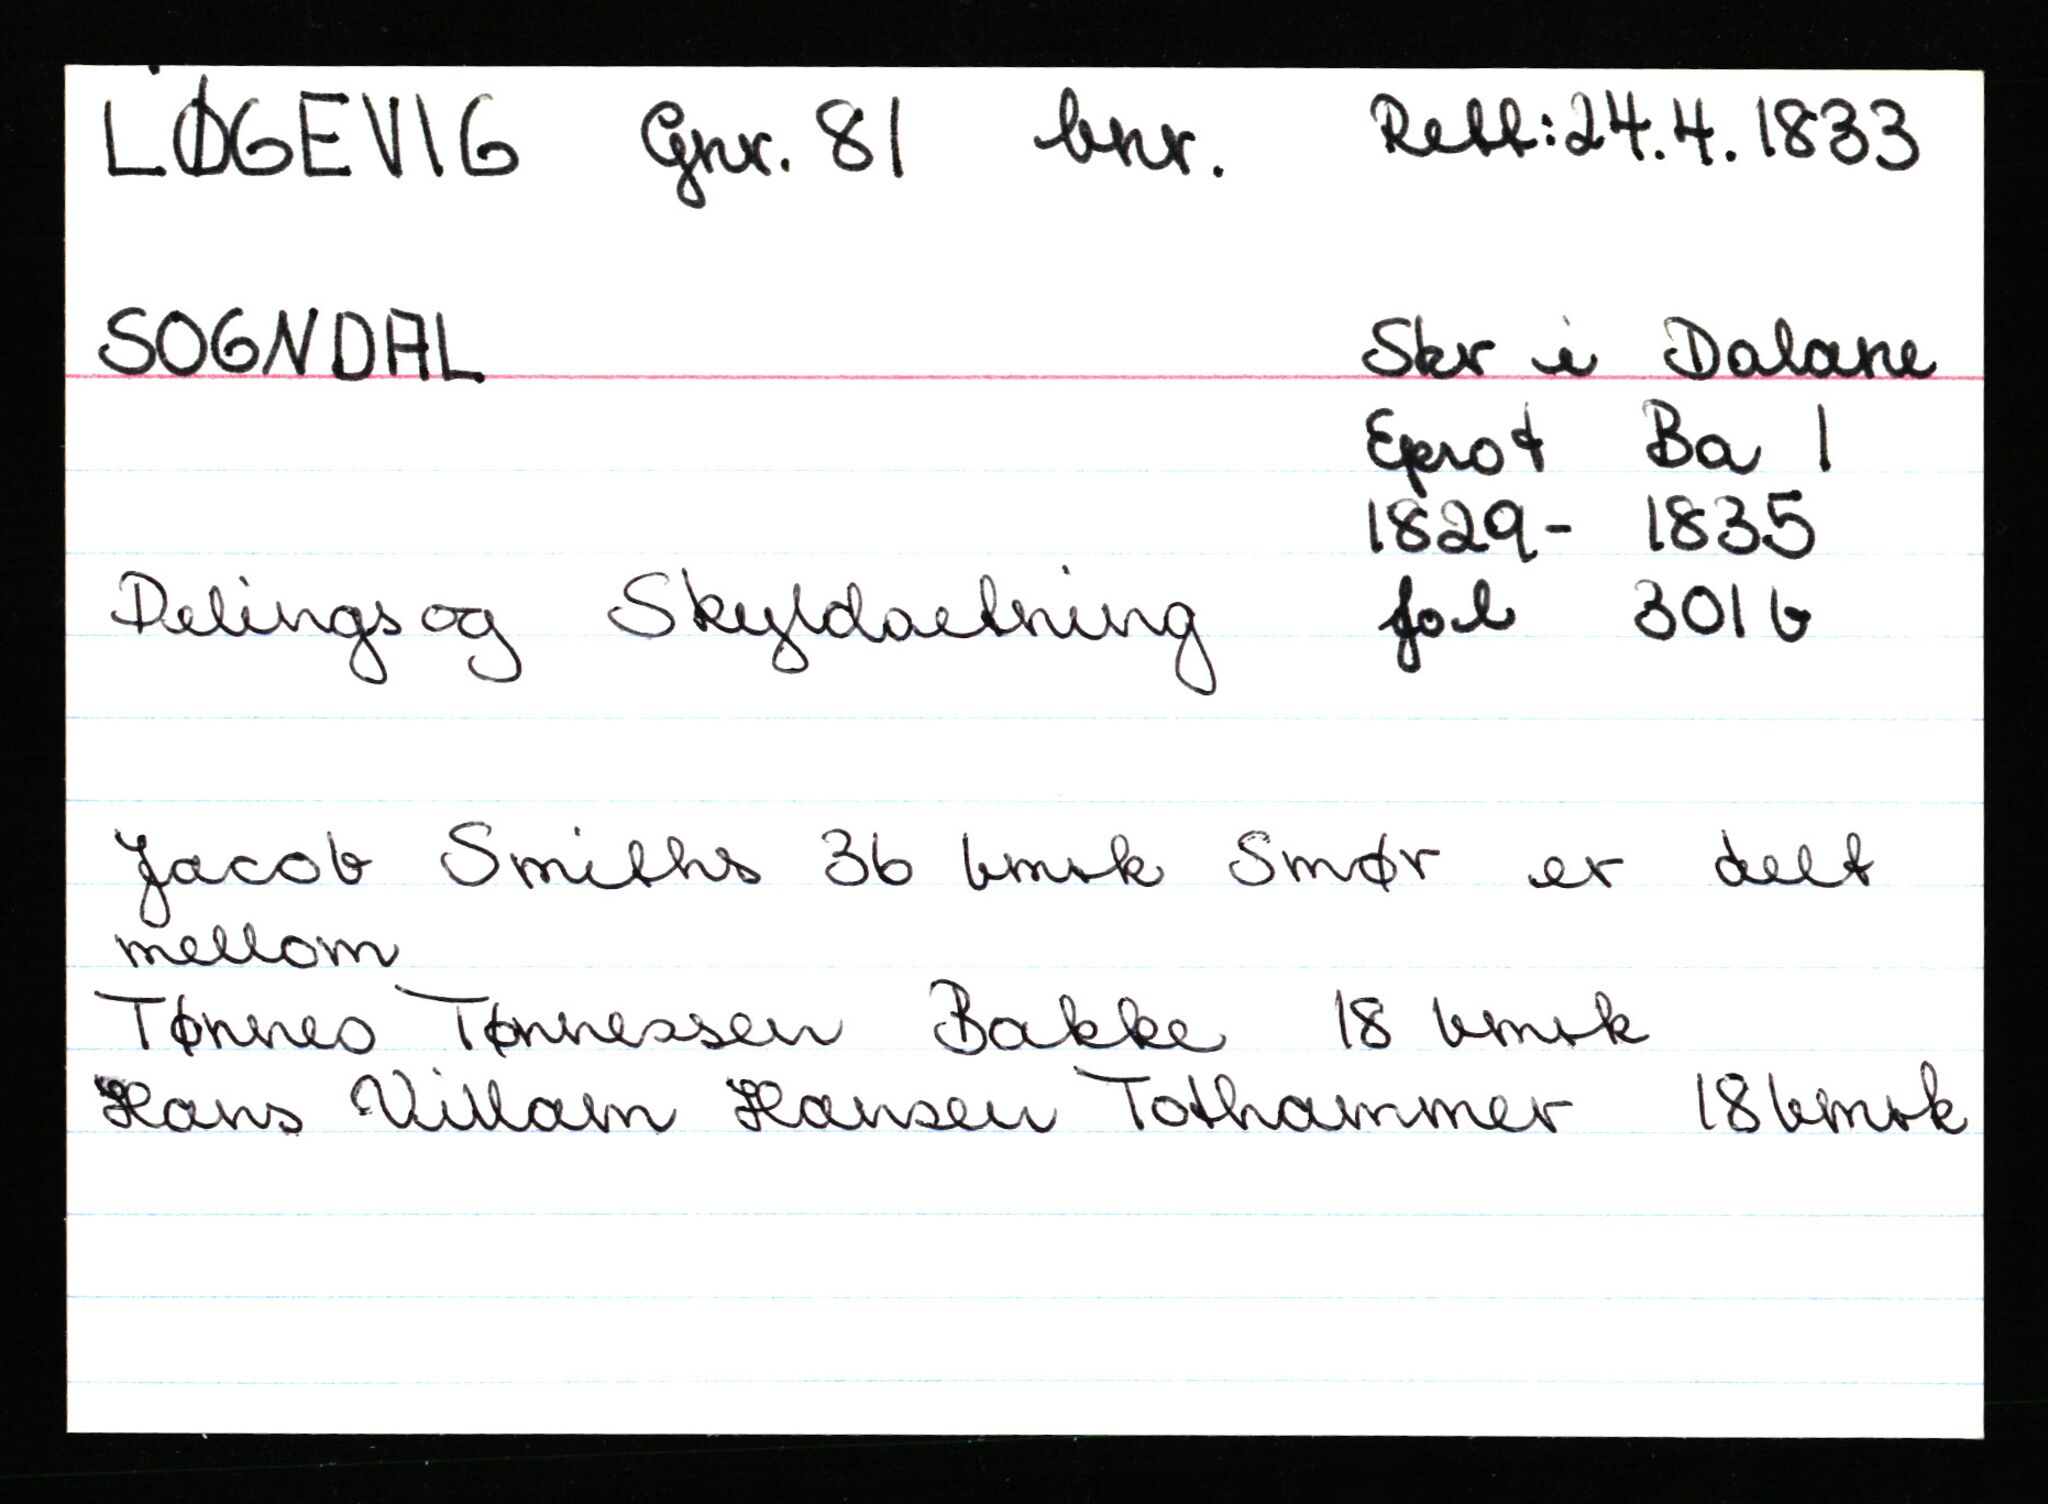 LØGEVIG Gnr. 81 bnr. Rett: 24.4.1833
SOGNDAL Skr i Dalane
Eprot Ba 1
1829- 1835
Delings og Skyldsetning fol 301 b
Jacob Smiths 36 bmrk Smør er delt
mellom
Tønnes Tønnessen Bakke 18 bmrk
Hans Villam Hansen Tothammer 18 bmrk